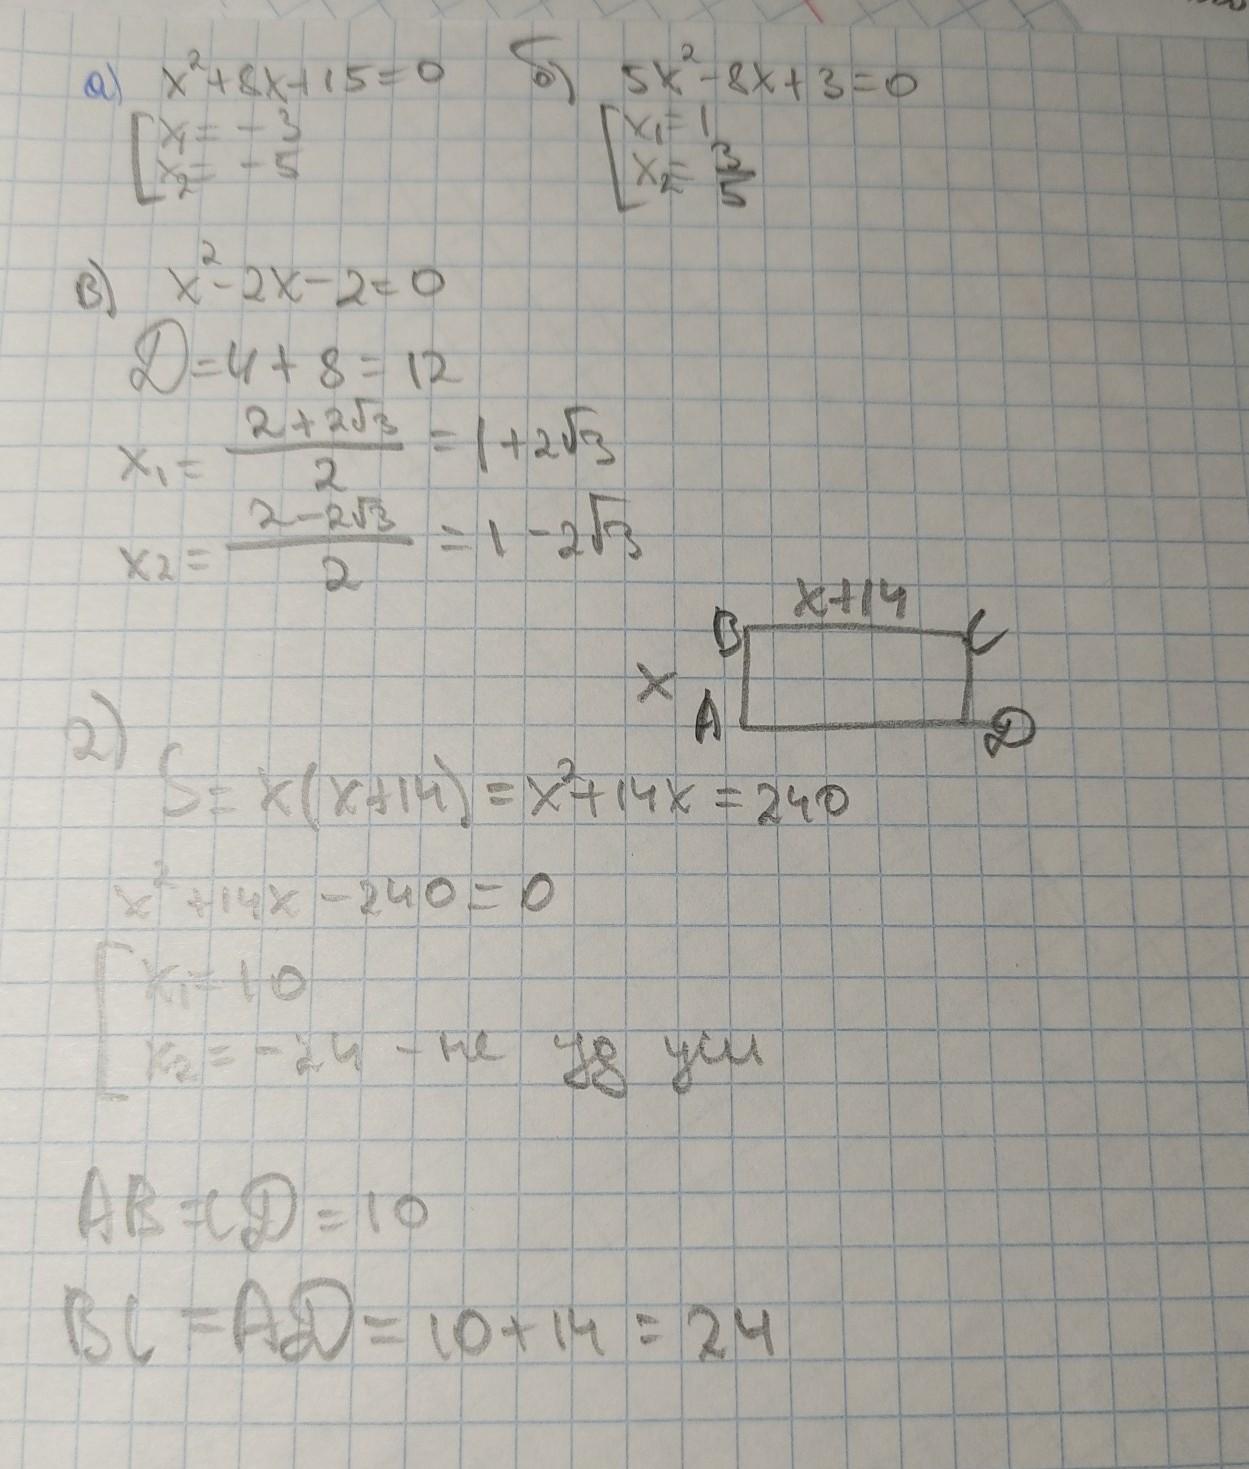 а) x²+8x+15=0 б) 5x²-8x+3=0
[x₁= -3 [x₁=1
x₂= -5 x₂= 3/5
в) x²-2x-2=0
D=4+8=12
x₁= (2+2√3)/2 =1+2√3
x₂= (2-2√3)/2 =1-2√3
x+14
B C
x
A D
2)
S= x(x+14)=x²+14x=240
x²+14x-240=0
[x₁=10
x₂=-24 - не уд усл
AB=CD=10
BC=AD=10+14=24